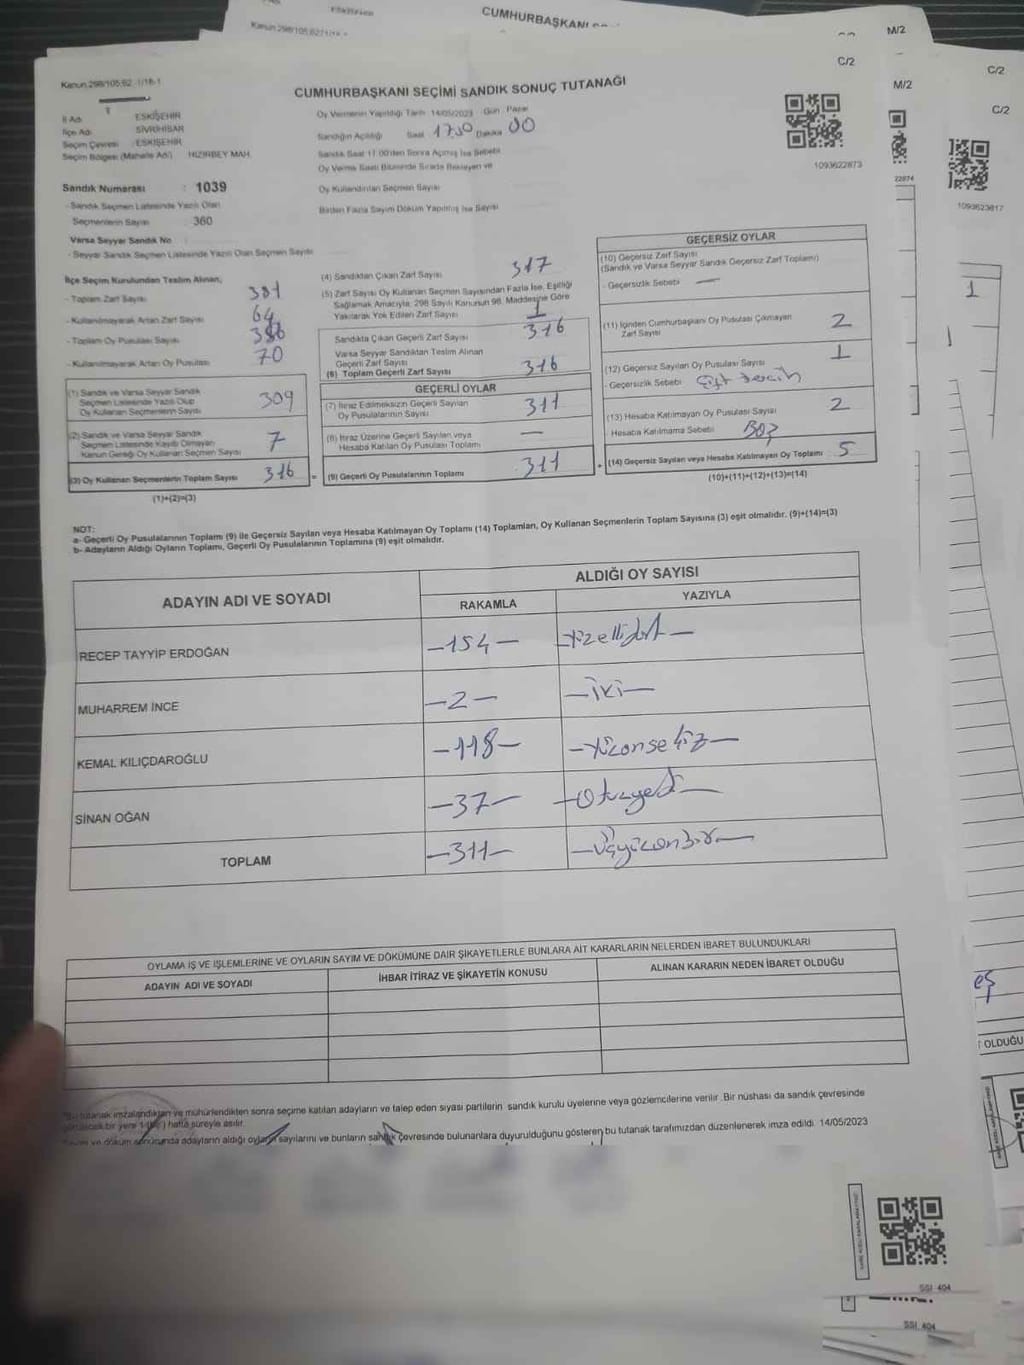 CUMHURBAŞKANI
M/2
C/2
Kanun 298/105,62 -1/18-1
CUMHURBAŞKANI SEÇİMİ SANDIK SONUÇ TUTANAĞI
C/2
M/2
C/2
İl Adı : ESKİŞEHİR
İlçe Adı : SİVRİHİSAR
Seçim Çevresi : ESKİŞEHİR
Seçim Bölgesi (Mahalle Adı) : HIZIRBEY MAH.
Oy Vermenin Yapıldığı Tarih 14/05/2023 Gün Pazar
Sandığın Açıldığı Saat 17:30 Dakika 00
Sandık Saat 17:00'den Sonra Açılmış İse Sebebi
Oy Verme Saati Bitiminde Sırada Bekleyen ve
Oy Kullandırılan Seçmen Sayısı
Birden Fazla Sayım Döküm Yapılmış İse Sayısı
1093622873
22874
1093623817
Sandık Numarası : 1039
- Sandık Seçmen Listesinde Yazılı Olan
Seçmenlerin Sayısı : 360
Varsa Seyyar Sandık No
- Seyyar Sandık Seçmen Listesinde Yazılı Olan Seçmen Sayısı
İlçe Seçim Kurulundan Teslim Alınan;
- Toplam Zarf Sayısı
- Kullanılmayarak Artan Zarf Sayısı 64
- Toplam Oy Pusulası Sayısı
- Kullanılmayarak Artan Oy Pusulası 70
(1) Sandık ve Varsa Seyyar Sandık
Seçmen Listesinde Yazılı Olup
Oy Kullanan Seçmenlerin Sayısı 309
(2) Sandık ve Varsa Seyyar Sandık
Seçmen Listesinde Kayıtlı Olmayan
Kanun Gereği Oy Kullanan Seçmen Sayısı 7
(3) Oy Kullanan Seçmenlerin Toplam Sayısı 316 =
(1)+(2)=(3)
(4) Sandıktan Çıkan Zarf Sayısı 317
(5) Zarf Sayısı Oy Kullanan Seçmen Sayısından Fazla İse, Eşitliği
Sağlamak Amacıyla; 298 Sayılı Kanunun 98. Maddesine Göre
Yakılarak Yok Edilen Zarf Sayısı 1
Sandıkta Çıkan Geçerli Zarf Sayısı 316
Varsa Seyyar Sandıktan Teslim Alınan
Geçerli Zarf Sayısı
(6) Toplam Geçerli Zarf Sayısı 316
GEÇERLİ OYLAR
(7) İtiraz Edilmeksizin Geçerli Sayılan
Oy Pusulalarının Sayısı 311
(8) İtiraz Üzerine Geçerli Sayılan veya
Hesaba Katılan Oy Pusulası Toplamı —
(9) Geçerli Oy Pusulalarının Toplamı 311 +
GEÇERSİZ OYLAR
(10) Geçersiz Zarf Sayısı
(Sandık ve Varsa Seyyar Sandık Geçersiz Zarf Toplamı)
- Geçersizlik Sebebi —
(11) İçinden Cumhurbaşkanı Oy Pusulası Çıkmayan
Zarf Sayısı 2
(12) Geçersiz Sayılan Oy Pusulası Sayısı 1
- Geçersizlik Sebebi Çift tercih
(13) Hesaba Katılmayan Oy Pusulası Sayısı 2
Hesaba Katılmama Sebebi Boş
(14) Geçersiz Sayılan veya Hesaba Katılmayan Oy Toplamı 5
(10)+(11)+(12)+(13)=(14)
NOT:
a- Geçerli Oy Pusulalarının Toplamı (9) ile Geçersiz Sayılan veya Hesaba Katılmayan Oy Toplamı (14) Toplamları, Oy Kullanan Seçmenlerin Toplam Sayısına (3) eşit olmalıdır. (9)+(14)=(3)
b- Adayların Aldığı Oyların Toplamı, Geçerli Oy Pusulalarının Toplamına (9) eşit olmalıdır.
ADAYIN ADI VE SOYADI
ALDIĞI OY SAYISI
RAKAMLA YAZIYLA
RECEP TAYYİP ERDOĞAN -154- Yüzellidört-
MUHARREM İNCE -2- -iki-
KEMAL KILIÇDAROĞLU -118- -Yüzonsekiz-
SİNAN OĞAN -37- -Otuzyedi-
TOPLAM -311- -Üçyüzonbir-
OYLAMA İŞ VE İŞLEMLERİNE VE OYLARIN SAYIM VE DÖKÜMÜNE DAİR ŞİKAYETLERLE BUNLARA AİT KARARLARIN NELERDEN İBARET BULUNDUKLARI
ADAYIN ADI VE SOYADI İHBAR İTİRAZ VE ŞİKAYETİN KONUSU ALINAN KARARIN NEDEN İBARET OLDUĞU
Bu tutanak imzalandıktan ve mühürlendikten sonra seçime katılan adayların ve talep eden siyasi partilerin sandık kurulu üyelerine veya gözlemcilerine verilir. Bir nüshası da sandık çevresinde
görülecek bir yere 1 (bir) hafta süreyle asılır.
Sayım ve döküm sonucunda adayların aldığı oyların sayılarını ve bunların sandık çevresinde bulunanlara duyurulduğunu gösteren bu tutanak tarafımızdan düzenlenerek imza edildi. 14/05/2023
1
eş
OLDUĞU
SSI: 404
SSI: 404